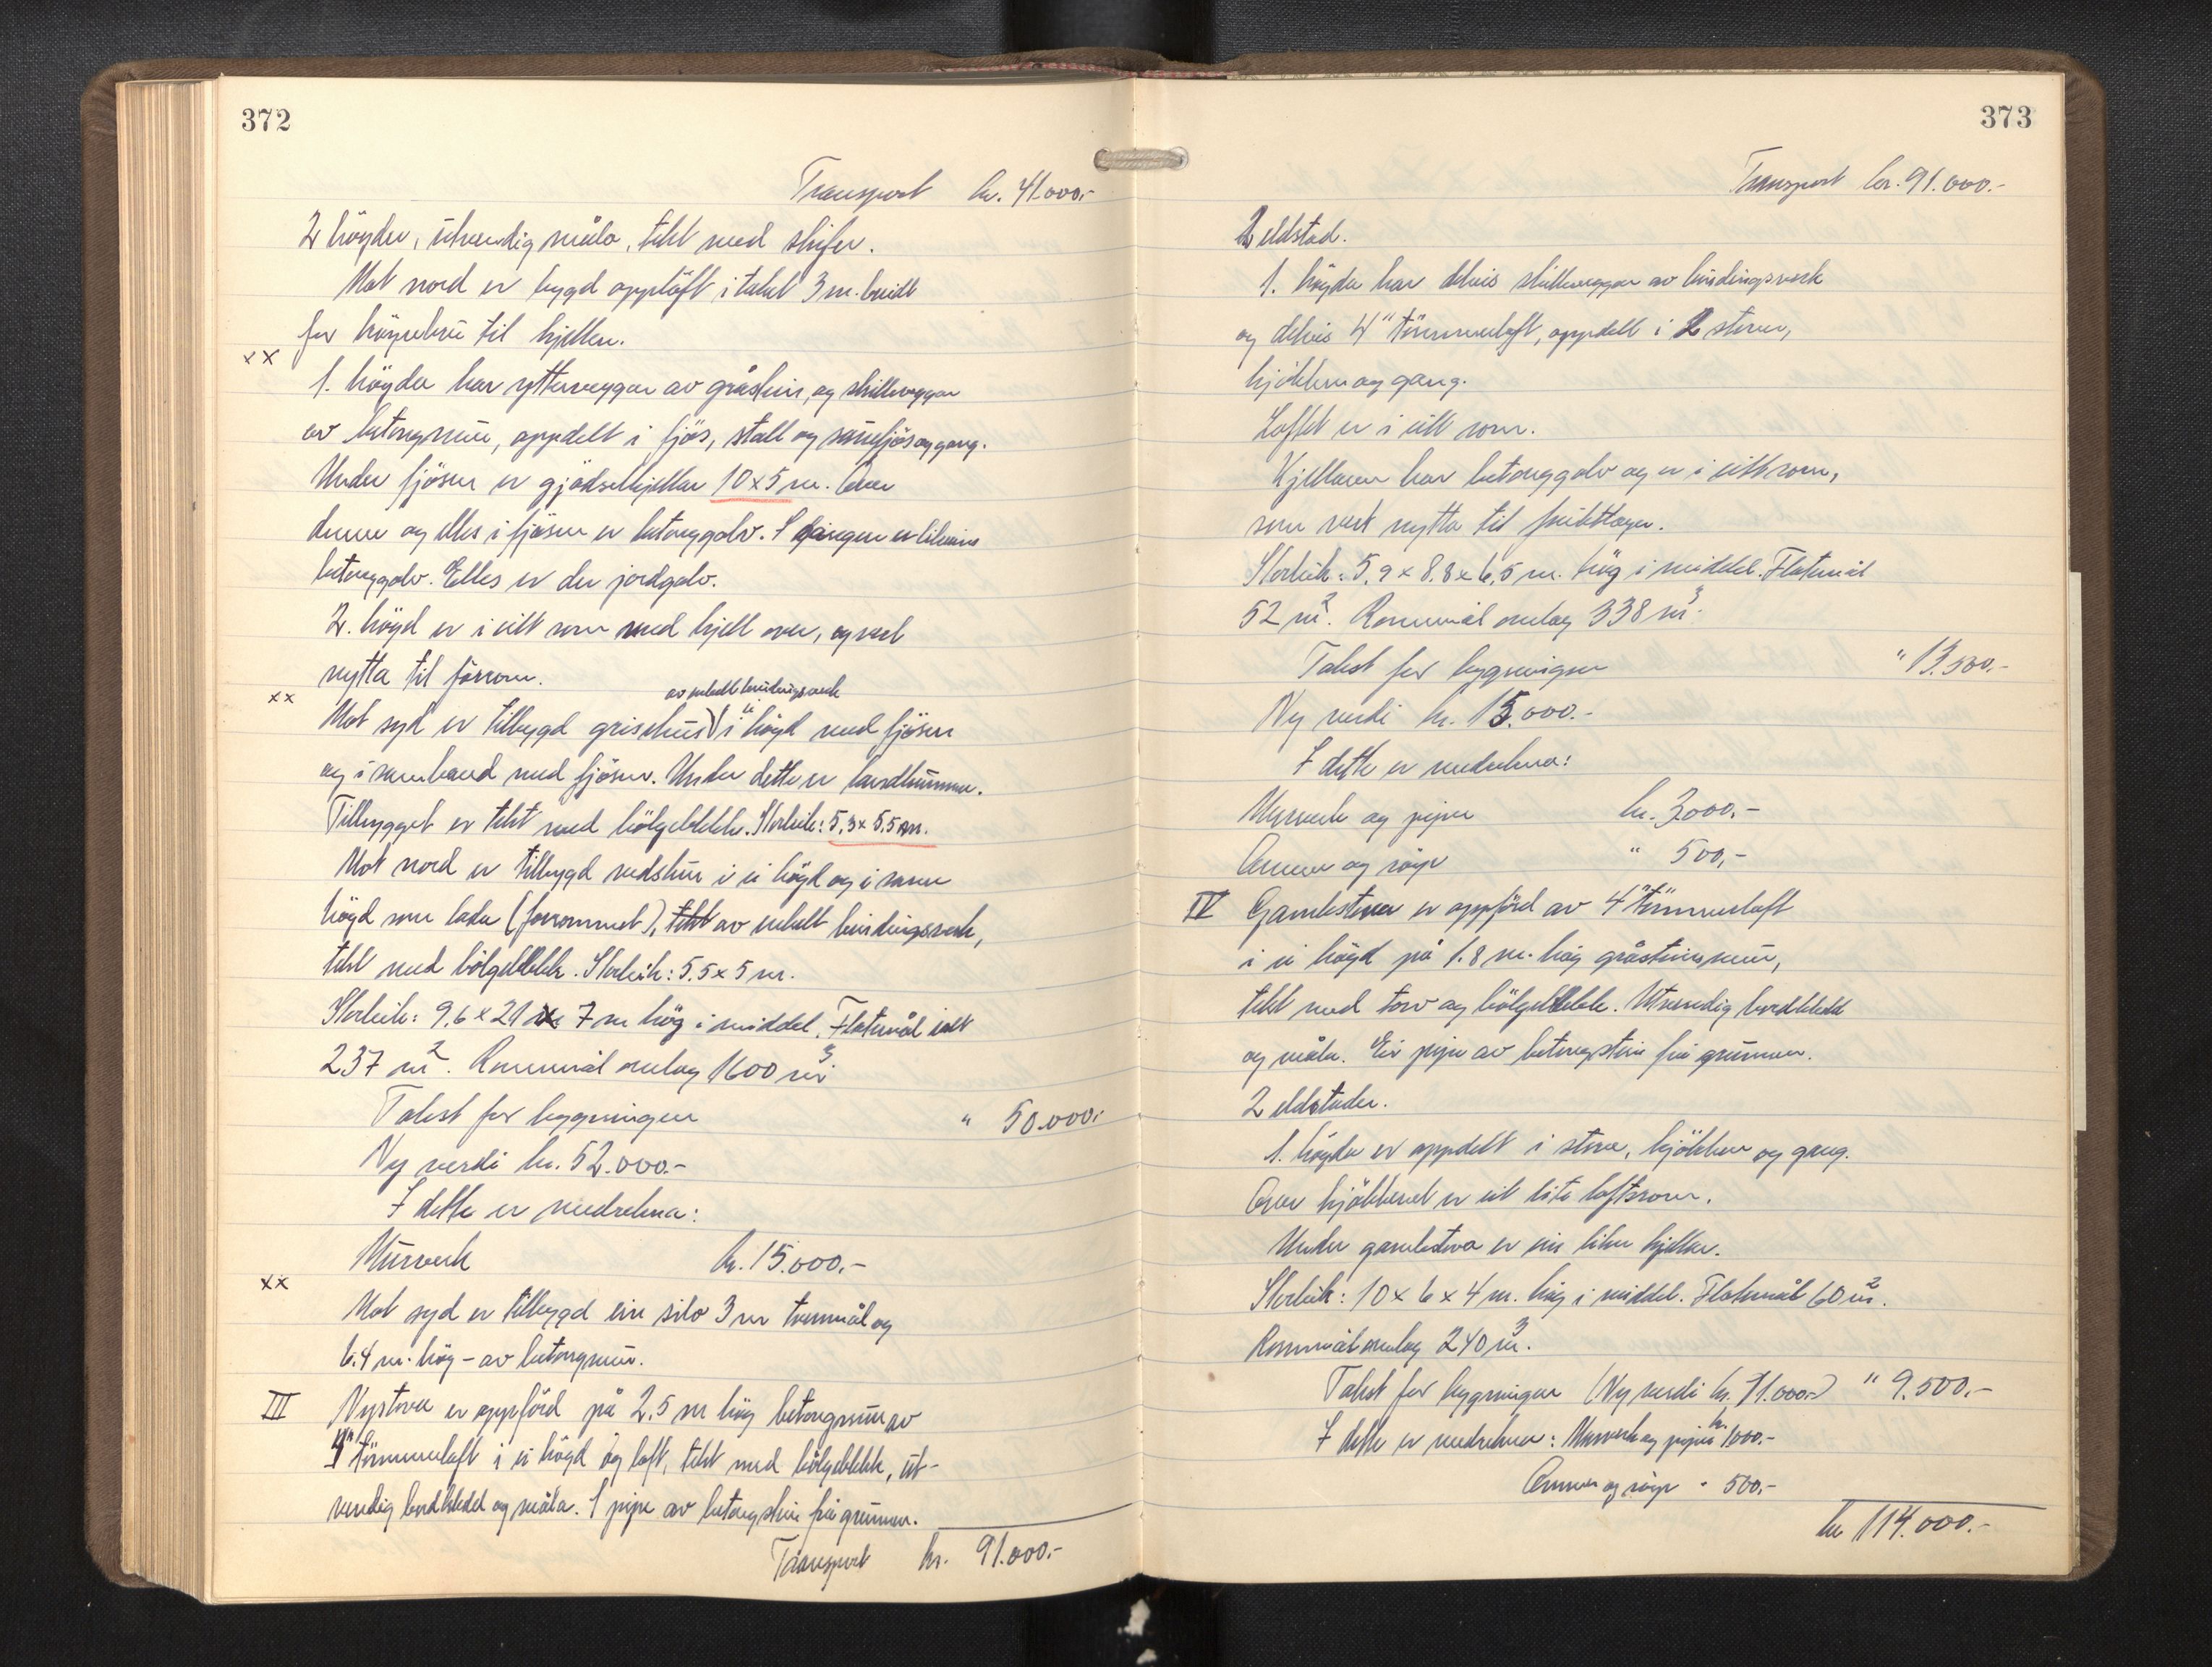 372
Transport kr. 41.000,-
2 högder, utvendig måla, tekt med skifer.
Mot nord er bygd opplöft i taket 3 m. breidt
for höyrebru til hjellen.
xx
1. högda har yttervegger av gråstein, og skillevegger
av betongmur, oppdelt i fjös, stall og sauefjös og gang.
Under fjösen er gjödselkjellar 10 x 5 m. Over
denne og elles i fjösen er betonggolv. I gangen er likeins
betonggolv. Elles er der jordgolv.
2. högd er i eitt rom med hjell over, og vert
nytta til förrom.
xx
av enkelt bindingsverk
Mot syd er tilbygd grisehus i ei högd med fjösen
og i samband med fjösen. Under dette er landkumme.
Tilbygget er tekt med bölgeblekk. Storleik: 5,3 x 5,5 m.
Mot nord er tilbygd vedskur i ei högd og i same
högd som lada (forrommet), tekt av enkelt bindingsverk,
tekt med bölgeblekk. Storleik: 5.5 x 5 m.
Storleik: 9,6 x 21 x 7 m hög i middel. Flatemål ialt
237 m². Rommål omlag 1600 m³
Takst for bygningen " 50.000,-
Ny verdi kr. 52.000.-
I dette er medrekna:
Murverk kr. 15.000,-
xx
Mot syd er tilbygd ein silo 3 m tvermål og
6.4 m. hög - av betongmur.
III Nystova er oppförd på 2,5 m hög betongmur av
4" tömmerlaft i ei högd og loft, tekt med bölgeblekk, ut-
vendig bordkledd og måla. 1 pipe av betongstein frå grunnen.
Transport kr. 91.000,-
373
Transport kr. 91.000.-
2 eldstad.
1. högda har delvis skillevegger av bindingsverk
og delvis 4" tömmerlaft, oppdelt i 2 stover,
kjökken og gang.
Loftet er i eitt rom.
Kjellaren har betonggolv og er i eitt rom,
som vert nytta til fruktlager.
Storleik: 5,9 x 8,8 x 6,5 m. hög i middel. Flatemål
52 m². Rommål omlag 338 m³.
Takst for bygningen " 13.500,-
Ny verdi kr. 15.000.-
I dette er medrekna:
Murverk og pipe kr. 3000,-
Omner og röyr " 500,-
IV Gamlestova er oppförd av 4" tömmerlaft
i ei högd på 1.8 m. hög gråsteinsmur,
tekt med torv og bölgeblekk. Utvendig bordkledd
og måla. Ei pipe av betongstein frå grunnen.
2 eldstader.
1. högda er oppdelt i stove, kjökken og gang.
Over kjökkenet er eit lite loftsrom.
Under gamlestova er ein liten kjellar.
Storleik: 10 x 6 x 4 m. hög i middel. Flatemål 60 m².
Rommål omlag 240 m³.
Takst for bygningen (Ny verdi kr. 11.000.-) " 9.500,-
I dette er medrekna: Murverk og pipe kr. 1000.-
Omner og röyr " 500,-
kr 114.000.-